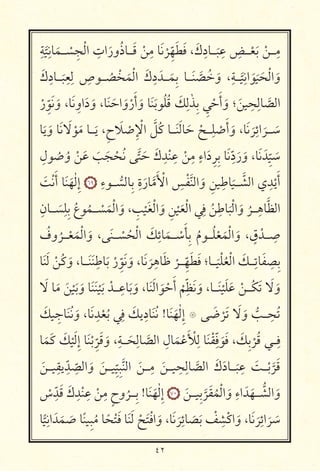 مِـنْ بَعْـضِ عِبَـادِكَ، فَطَهِّرْنَا مِنْ قَـاذُورَاتِ الْجِسْـمَـانِيَّةِ
وَالْحَيَوَانِيَّـةِ، وَخُصَّنَـا بِمَـدَدِكَ الْمَخْصُـوصِ لِعِبَادِكَ
الصَّالِحِينَ؛ وَأَحْيِ بِذَلِكَ قُلُوبَنَا وَأَرْوَاحَنَا، وَدَاوِنَا، وَنَوِّرْ
سَـرَائِرَنَا، وَأَصْلِـحْ حَالَنَـا كُلَّ الْإِصْلَاحِ، يَـا مَوْلَانَا وَيَا
سَـيِّدَنَا، وَرَدِّنَا بِرِدَاءِ مِنْ عِنْدِكَ حَتَّى نُحْجَبَ عَنْ وُصُولِ
أَيْدِي الشَّـيَاطِينِ وَالنَّفْسِ الْأَمَّارَةِ بِالسُّـوءِ ﴿٦٩﴾ إِلٰهَنَا أَنْتَ
الظَّاهِـرُ وَالْبَاطِنُ فِي الْعَيْنِ وَالْغَيْبِ، وَالْمَسْـمُوعُ بِلِسَـانِ
صِـدْقٍ، وَالْمَعْلُـومُ بِأَسْـمَائِكَ الْحُسْـنَى، وَالْمَعْـرُوفُ
بِصِفَاتِـكَ الْعُلْيَـا؛ فَطَهِّـرْ ظَاهِرَنَا، وَنَوِّرْ بَاطِنَنَـا، وَكُنْ لَنَا
وَلَا تَكُـنْ عَلَيْنَـا، وَنَظِّمْ أَحْوَالَنَا، وَبَاعِـدْ بَيْنَنَا وَبَيْنَ مَا لَا
تُحِـبُّ وَلَا تَرْضَى ۞ إِلٰهَنَا! نُنَادِيكَ فِي بُعْدِنَا، وَنُنَاجِيكَ
فِـي قُرْبِكَ، فَوَفِّقْنَا لِلْأَعْمَالِ الصَّالِحَـةِ، وَقَرِّبْنَا إِلَيْكَ كَمَا
قَرَّبْـتَ عِبَـادَكَ الصَّالِحِيـنَ مِـنَ النَّبِيِّيـنَ وَالصِّدِّيقِيـنَ
وَالشُّـهَدَاءِ وَالْمُقَرَّبِيـنَ ﴿٧٠﴾ إِلٰهَنَا! بِـرُوحٍ مِنْ عِنْدِكَ قَدِّسْ
سَرَائِرَنَا، وَاكْشِفْ بَصَائِرَنَا، وَافْتَحْ لَنَا فَتْحًا مُبِينًا صَمَدَانِيًّا
٤٢